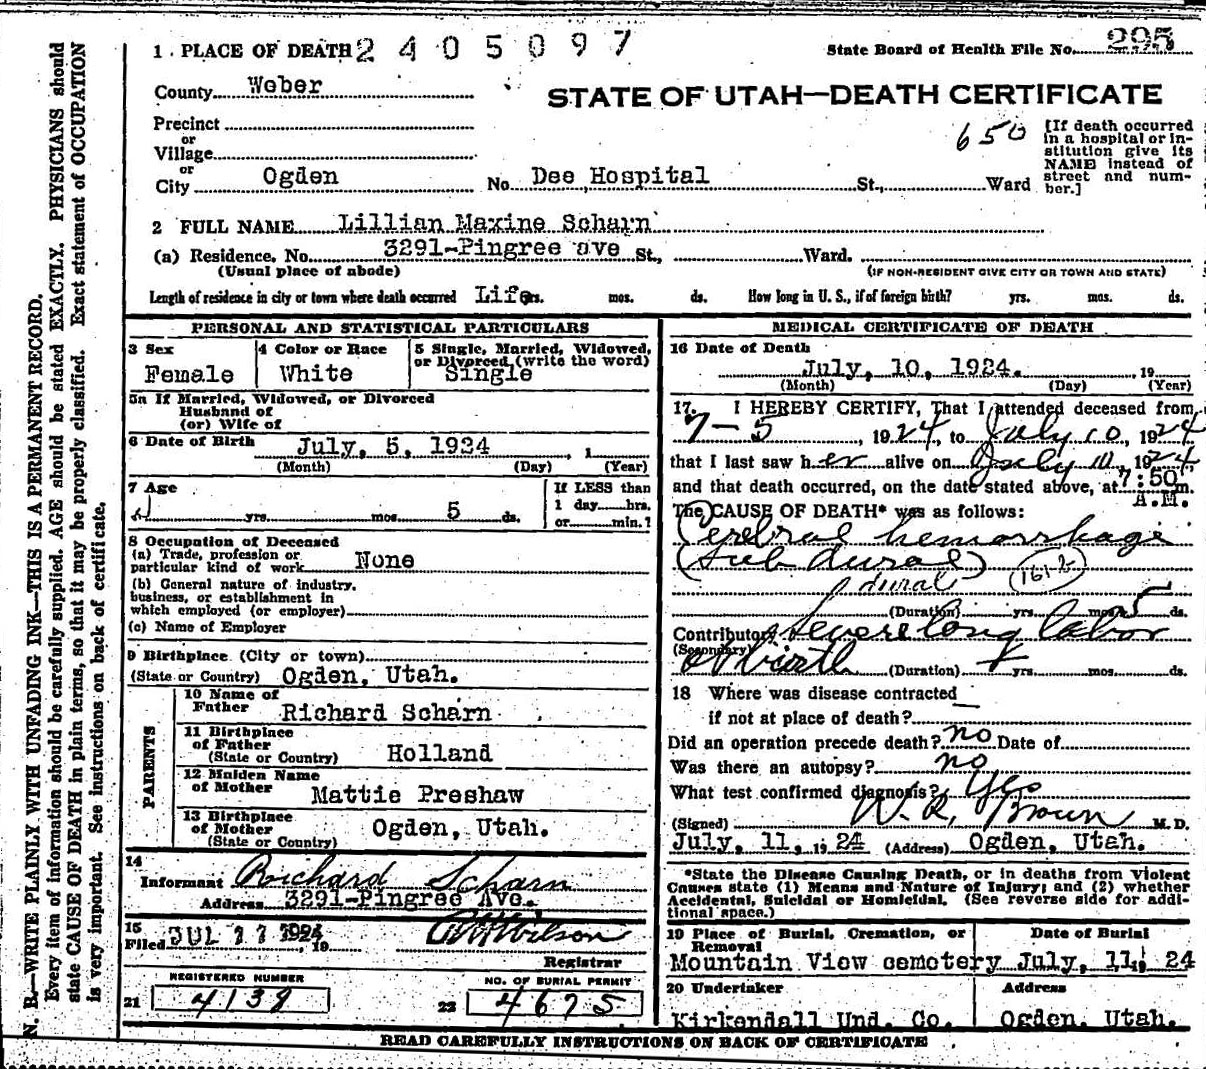 1 PLACE OF DEATH 2405097
State Board of Health File No. 295
County Weber
STATE OF UTAH—DEATH CERTIFICATE
Precinct
or
Village
or
City Ogden No Dee Hospital St., Ward
650
[If death occurred in a hospital or in-
stitution give its NAME instead of street and num-
ber.]
2 FULL NAME Lillian Maxine Scharn
(a) Residence, No. 3291-Pingree ave St., Ward.
(Usual place of abode)
(IF NON-RESIDENT GIVE CITY OR TOWN AND STATE)
Length of residence in city or town where death occurred Life yrs. mos. ds. How long in U. S., if of foreign birth? yrs. mos. ds.
PERSONAL AND STATISTICAL PARTICULARS
3 Sex
Female
4 Color or Race
White
5 Single, Married, Widowed,
or Divorced (write the word)
Single
5a If Married, Widowed, or Divorced
Husband of
(or) Wife of
6 Date of Birth July, 5, 1924 , 1
(Month) (Day) (Year)
7 Age
yrs. mos. 5 ds.
If LESS than
1 day hrs.
or min.?
8 Occupation of Deceased
(a) Trade, profession or
particular kind of work None
(b) General nature of industry,
business, or establishment in
which employed (or employer)
(c) Name of Employer
9 Birthplace (City or town)
(State or Country) Ogden, Utah.
PARENTS
10 Name of
Father Richard Scharn
11 Birthplace
of Father
(State or Country) Holland
12 Maiden Name
of Mother Mattie Preshaw
13 Birthplace
of Mother
(State or Country) Ogden, Utah.
14
Informant Richard Scharn
Address 3291-Pingree Ave.
15
Filed JUL 11 1924, 19
Wilson
Registrar
REGISTERED NUMBER
21 4139
NO. OF BURIAL PERMIT
22 4675
MEDICAL CERTIFICATE OF DEATH
16 Date of Death
July, 10, 1924. , 19
(Month) (Day) (Year)
17. I HEREBY CERTIFY, That I attended deceased from
7-5, 1924, to July 10, 1924
that I last saw her alive on July 10, 1924,
and that death occurred, on the date stated above, at 7:50 m.
A.M.
The CAUSE OF DEATH* was as follows:
Cerebral hemorrhage
(Sub dural)
dural 161-2
(Duration) yrs. mos. 5 ds.
Contributory Severe long labor
(Secondary)
at birth (Duration) yrs. mos. ds.
18 Where was disease contracted
if not at place of death?
Did an operation precede death? no Date of
Was there an autopsy? no
What test confirmed diagnosis? Yes
(Signed) W. R. Brown M. D.
July, 11, 1924 (Address) Ogden, Utah.
*State the Disease Causing Death, or in deaths from Violent
Causes state (1) Means and Nature of Injury; and (2) whether
Accidental, Suicidal or Homicidal. (See reverse side for addi-
tional space.)
19 Place of Burial, Cremation, or
Removal
Mountain View cemetery
Date of Burial
July, 11, 24
20 Undertaker
Kirkendall Und. Co.
Address
Ogden, Utah.
READ CAREFULLY INSTRUCTIONS ON BACK OF CERTIFICATE
N. B.—WRITE PLAINLY WITH UNFADING INK—THIS IS A PERMANENT RECORD.
Every item of information should be carefully supplied. AGE should be stated EXACTLY. PHYSICIANS should
state CAUSE OF DEATH in plain terms, so that it may be properly classified. Exact statement of OCCUPATION
is very important. See instructions on back of certificate.